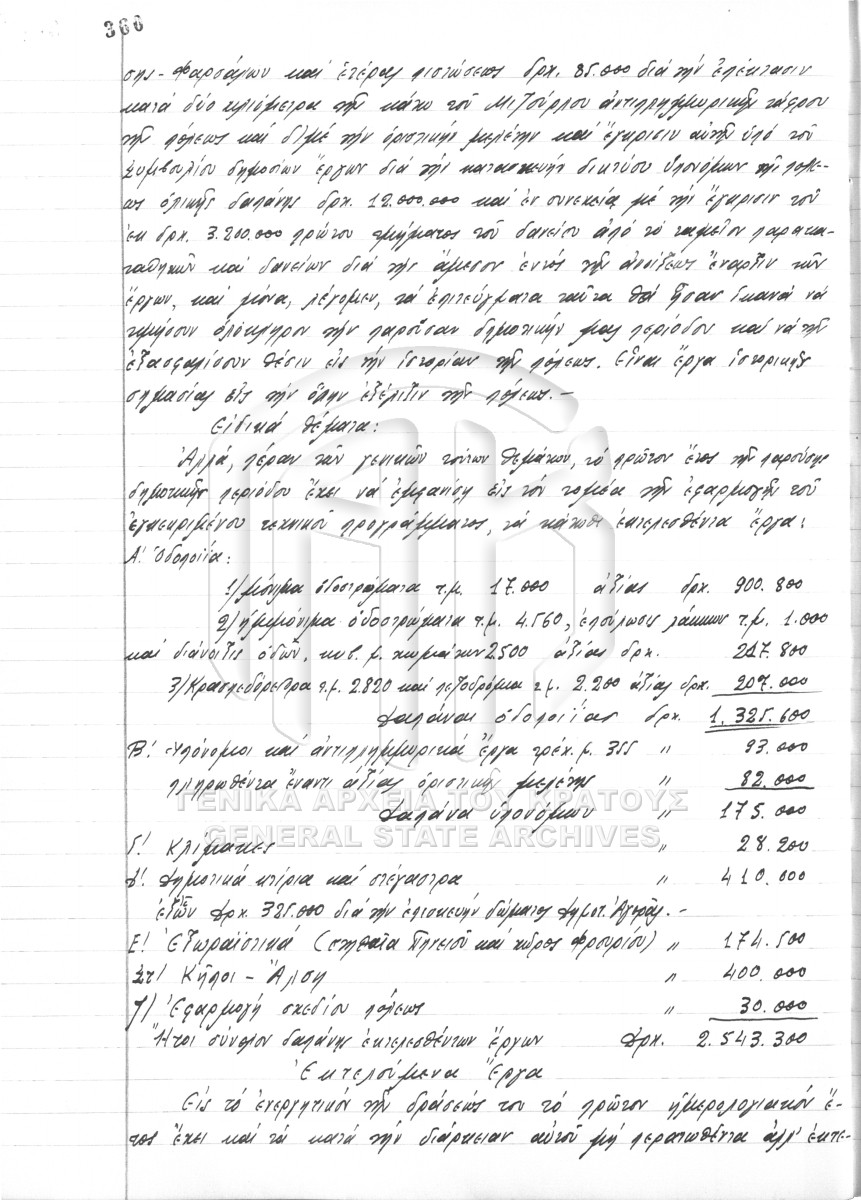 366
σης - Φαρσάλων καί ἑτέρας πιστώσεως δρχ. 85.000 διά τήν ἐπέκτασιν
κατά δύο χιλιόμετρα τῆς κάτω τοῦ Μεζούρλου ἀντιπλημμυρικῆς τάφρου
τῆς πόλεως καί δή μέ τήν ὁριστικήν μελέτην καί ἔγκρισιν αὐτῆς ὑπό τοῦ
Συμβουλίου δημοσίων ἔργων διά τήν κατασκευήν δικτύου ὑπονόμων τῆς πόλε-
ως ὁλικῆς δαπάνης δρχ. 12.000.000 καί ἐν συνεχεία μέ τήν ἔγκρισιν τοῦ
ἐκ δρχ. 3.200.000 πρώτου τμήματος τοῦ δανείου ἀπό τό ταμεῖον παρακα-
ταθηκῶν καί δανείων διά τήν ἄμεσον ἐντός τῆς ἀνοίξεως ἔναρξιν τῶν
ἔργων, καί μόνα, λέγομεν, τά ἐπιτεύγματα ταῦτα θά ἦσαν ἱκανά νά
τιμήσουν ὁλόκληρον τήν παροῦσαν δημοτικήν μας περίοδον καί νά τῆς
ἐξασφαλίσουν θέσιν εἰς τήν ἱστορίαν τῆς πόλεως. Εἶναι ἔργα ἱστορικῆς
σημασίας εἰς τήν ὅλην ἐξέλιξιν τῆς πόλεως. -
Εἰδικά θέματα:
Ἀλλά, πέραν τῶν γενικῶν τούτων θεμάτων, τό πρῶτον ἔτος τῆς παρούσης
δημοτικῆς περιόδου ἔχει νά ἐμφανίση εἰς τόν τομέα τῆς ἐφαρμογῆς τοῦ
ἐγκεκριμένου τεχνικοῦ προγράμματος, τά κάτωθι ἐκτελεσθέντα ἔργα:
Α! Ὁδοποιία:
1) μόνιμα ὁδοστρώματα τ.μ. 17.000 ἀξίας δρχ. 900.800
2) ἡμιμόνιμα ὁδοστρώματα τ.μ. 4.560, ἐπούλωσις λάκκων τ.μ. 1.000
καί διάνοιξις ὁδῶν, κυβ. μ. χωμάτων 2500 ἀξίας δρχ. 217.800
3) Κρασπεδόρειθρα τ.μ. 2.820 καί πεζοδρόμια τ.μ. 2.200 ἀξίας δρχ. 207.000
Δαπάναι ὁδοποιίας δρχ. 1.325.600
Β! Ὑπόνομοι καί ἀντιπλημμυρικά ἔργα τρέχ. μ. 355 " 93.000
πληρωθέντα ἔναντι ἀξίας ὁριστικῆς μελέτης " 82.000
Δαπάνα ὑπονόμων " 175.000
ΓΕΝΙΚΑ ΑΡΧΕΙΑ ΤΟΥ ΚΡΑΤΟΥΣ
GENERAL STATE ARCHIVES
Γ! Κλίμακες " 28.200
Δ! Δημοτικά κτίρια καί στέγαστρα " 410.000
ἐξ ὧν Δρχ. 325.000 διά τήν ἐπισκευήν δώματος Δημοτ. Ἀγορᾶς. -
Ε! Ἐξωραϊστικά (στηθαῖα Πηνειοῦ καί χῶρος Φρουρίου) " 174.500
Στ! Κῆποι - Ἄλση " 400.000
Ζ) Ἐφαρμογή σχεδίου πόλεως " 30.000
Ἤτοι σύνολον δαπάνης ἐκτελεσθέντων ἔργων Δρχ. 2.543.300
Ἐκτελούμενα Ἔργα
Εἰς τό ἐνεργητικόν τῆς δράσεώς του τό πρῶτον ἡμερολογιακόν ἔ-
τος ἔχει καί τά κατά τήν διάρκειαν αὐτοῦ μή περατωθέντα ἀλλ' ἐκτε-